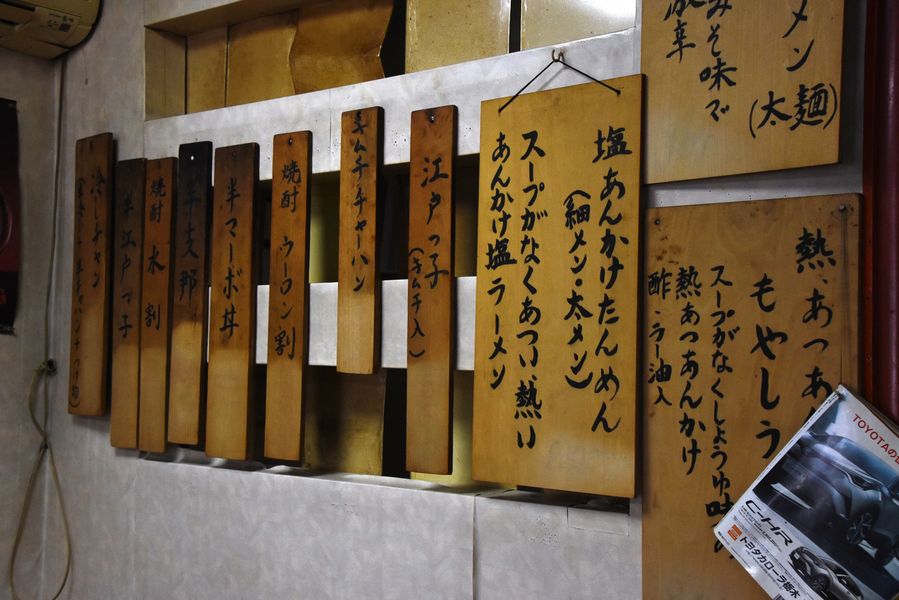 メン
(太麺)
みそ味で
熱、あつあ
もやしう
スープがなくしょうゆ味の
熱あつあんかけ
酢・ラー油入
塩あんかけたんめん
(細メン・太メン)
スープがなくあつい、熱い
あんかけ塩ラーメン
江戸っ子
(キムチ入)
キムチチャーハン
焼酎 ウーロン割
半マーボ丼
半支那
焼酎 水割
半江戸っ子
冷しチャン
TOYOTAの
C-HR
トヨタカローラ栃木